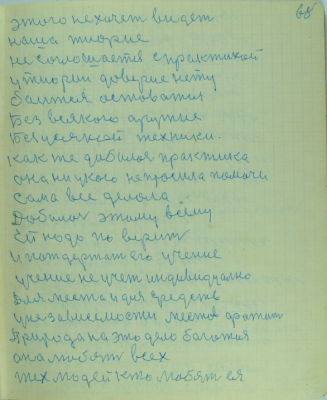 68
этого не хочет видеть
наша теория
не соглошается с практикой
у теории доверие нету
боится остоватся
Без всякого аружия
Без усякой техники.
как же добилася практика
она ни укого не просила помочи
сама все делола
Добилас этому всёму
Ей нодо по верит
и поддержат его учение
учение не учет индивидуално
Для места и для средств
у независемости местов
Природа на это дело богатоя
она любят всех
тех людей кто любят ея